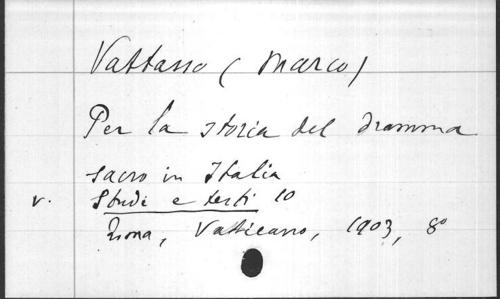 Vattasso (Marco)
Per la storia del dramma
sacro in Italia
v. Studi e testi 10
Roma, Vaticano, 1903, 8º